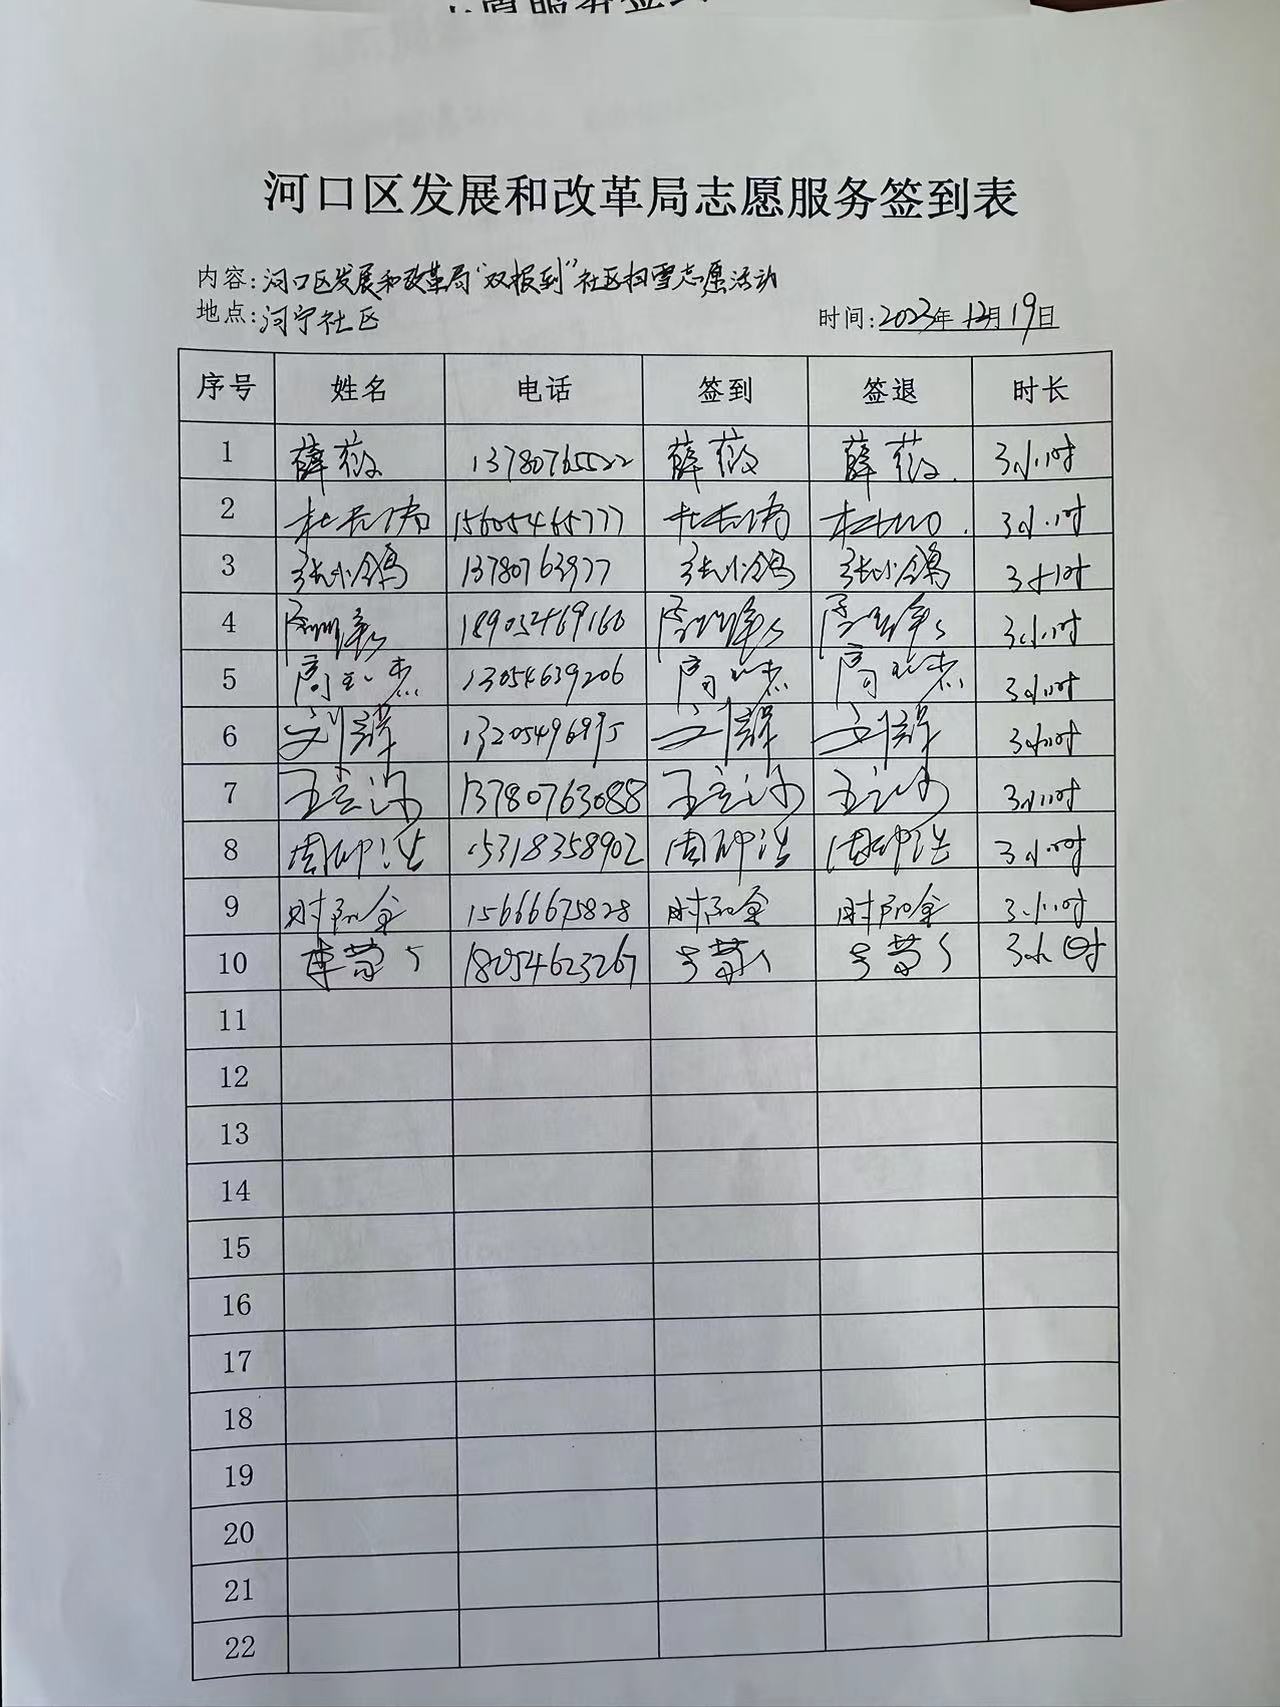 志愿服务签到
河口区发展和改革局志愿服务签到表
内容:河口区发展和改革局“双报到”社区扫雪志愿活动
地点:河宁社区 时间:2023年12月19日
序号 姓名 电话 签到 签退 时长
1 薛薇 13780765522 薛薇 薛薇. 3小时
2 15605465777 3小时
3 张小鸽 13780763977 张小鸽 张小鸽 3小时
4 18905469160 3小时
5 13054639206 3小时
6 刘辉 13205496995 刘辉 刘辉 3小时
7 13780763088 3小时
8 周 15318358902 周 周 3小时
9 时阳金 15666675828 时阳金 时阳金 3小时
10 18054623267 3小时
11
12
13
14
15
16
17
18
19
20
21
22